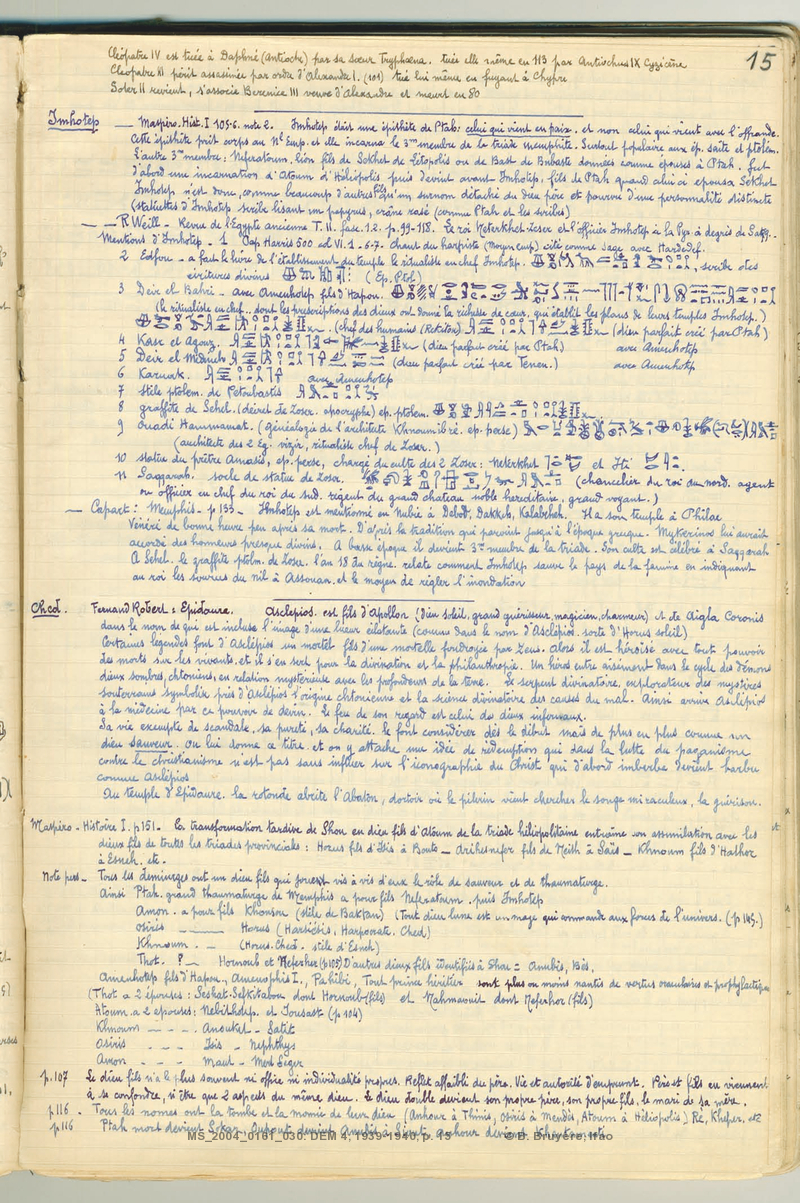 15
Cléopâtre IV est tuée à Daphné (Antioche) par sa sœur Tryphoena. tuée elle même en 113 par Antiochus IX Cyzicène
Cléopatre III périt assassinée par ordre d'Alexandre I. (101) tué lui même en fuyant à Chypre
Soter II revient, s'associe Bérénice III veuve d'Alexandre et meurt en 80
Imhotep — Maspéro. Hist. I 105-6. note 2. Imhotep était une épithète de Ptah: celui qui vient en paix. et non celui qui vient avec l'offrande.
Cette épithète prit corps au Nel Emp. et elle incarna le 3me membre de la triade memphite. Surtout populaire aux ép. saïte et ptolém.
L'autre 3me membre: Nefertoum, lion fils de Sekhet de Létopolis ou de Bast de Bubaste données comme épouses à Ptah. fut
d'abord une incarnation d'Atoum d'Héliopolis puis devint avant Imhotep, fils de Ptah quand celui ci epousa Sekhet
Imhotep n'est donc, comme beaucoup d'autres fils qu'un surnom détaché du dieu père et pourvu d'une personnalité distincte
(statuettes d'Imhotep scribe lisant un papyrus, crâne rasé (comme Ptah et les scribes)
— — R Weill — Revue de l'Egypte ancienne T. II. fasc. 1.2. p. 99-118. Le roi Neterkhet-Zeser et l'officier Imhotep à la Pyr. à degrés de Saqq.
Mentions d'Imhotep - 1 Pap Harris 500 col VI. 1 - 6-7. chant du harpiste (moyen emp) cité comme sage avec Hardedef.
2 Edfou - a fait le livre de l'établissement du temple le ritualiste en chef Imhotep. , scribe des
écritures divines (Ep. Ptol)
3 Deir el Bahri - avec Amenhotep fils d'Hapou.
(le ritualiste en chef.. dont les prescriptions des dieux ont donné la richesse de cœur, qui établit les plans de leurs temples Imhotep.)
(chef des humains (Rekhitou) (dieu parfait créé par Ptah)
4 Kasr el Agouz. (dieu parfait créé par Ptah) avec Amenhotep
5 Deir el Médineh (dieu parfait créé par Tenen.) avec Amenhotep
6 Karnak. avec Amenhotep
7 stèle ptolem. de Petoubastis
8 graffite de Sehel. (décret de Zoser. apocryphe) ep. ptolem.
9 Ouadi Hammamat. (généalogie de l'architecte Khnoumibré. ep. perse)
(architecte des 2 Eg. vizir, ritualiste chef de Zoser.)
10 statue du prêtre Amasis, ep. perse, chargé du culte des 2 Zoser: Neterkhet et Iti
11 Saqqarah. socle de statue de Zoser. (chancelier du roi du nord. agent
ou officier en chef du roi du sud. régent du grand chateau noble héréditaire, grand voyant.)
— Capart: Memphis - p 133 — Imhotep est mentionné en Nubie à Debod, Dakkeh, Kalabcheh. Il a son temple à Philae
Vénéré de bonne heure peu après sa mort. D'après la tradition qui parvint jusqu'à l'époque grecque. Mykerinos lui aurait
accordé des honneurs presque divins. A basse époque il devient 3me membre de la triade. Son culte est célébré à Saqqarah
A Sehel. le graffite ptolm. de Zoser. l'an 18 du règne. relate comment Imhotep sauve le pays de la famine en indiquant
au roi les sources du nil à Assouan. et le moyen de régler l'inondation
Ched. Fernand Robert: Epidaure. Asclepios. est fils d'Apollon (dieu soleil, grand guérisseur, magicien, charmeur) et de Aigla Coronis
dans le nom de qui est incluse l'image d'une lueur éclatante (comme dans le nom d'Asclépios. sorte d'Horus soleil)
Certaines légendes font d'Asclépios un mortel fils d'une mortelle foudroyée par Zeus. Alors il est héroïsé avec tout pouvoir
des morts sur les vivants, et il s'en sert pour la divination et la philanthropie. Un héros entre aisément dans le cycle des démons
dieux sombres, chtoniens, en relation mystérieuse avec les profondeurs de la terre. Le serpent divinatoire, explorateur des mystères
souterrains symbolise près d'Asclépios l'origine chtonienne et la science divinatoire des causes du mal. Ainsi arriva Asclépios
à la médecine par ce pouvoir de devin. Le feu de son regard est celui des dieux infernaux.
Sa vie exempte de scandale, sa pureté, sa charité. le font considérer dès le début mais de plus en plus comme un
dieu sauveur. On lui donne ce titre. et on y attache une idée de rédemption qui dans la lutte du paganisme
contre le christianisme n'est pas sans influer sur l'iconographie du Christ qui d'abord imberbe devient barbu
comme Asclépios
Au temple d'Epidaure. la rotonde abrite l'Abaton, dortoir où le pèlerin vient chercher le songe miraculeux, la guérison.
Maspéro - Histoire I. p 151. - La transformation tardive de Shou en dieu fils d'Atoum de la triade héliopolitaine entraîne son assimilation avec les
dieux fils de toutes les triades provinciales: Horus fils d'Isis à Bouto — Arihesnefer fils de Neith à Saïs — Khnoum fils d'Hathor
à Esneh. etc.
Note pers - Tous les démiurges ont un dieu fils qui jouent vis à vis d'eux le rôle de sauveur et de thaumaturge.
Ainsi Ptah. grand thaumaturge de Memphis a pour fils Nefertoum. puis Imhotep
Amon. a pour fils Khonsou (stèle de Bakhtan) (Tout dieu lune est un mage qui commande aux forces de l'univers. (p 145.)
Osiris — Horus (Harsiésis, Harpocrate. Ched)
Khnoum. — (Horus-Ched. stèle d'Esneh)
Thot. ? — Hornoub et Neferher (p 105) D'autres dieux fils identifiés à Shou = Anubis, Bès,
Amenhotep fils d'Hapou, Amenophis I., Pahibi, Tout prince héritier sont plus ou moins nantis de vertus oraculaires et prophylactiques
(Thot a 2 épouses: Seshat-Sefkitabou dont Hornoub (fils) et Nahmaouit dont Neferhor (fils)
Atoum. a 2 epouses: Nebthotep. et Iousast (p 104)
Khnoum — — - Anouket - Satit
Osiris - - - Isis - Nephthys
Amon - - - Maut - Mert Seger
p. 107 Le dieu fils n'a le plus souvent ni office ni individualité propres. Reflet affaibli du père. Vie et autorité d'emprunt. Père et fils en viennent
à se confondre, n'être que 2 aspects du même dieu. Le dieu double devient son propre père, son propre fils, le mari de sa mère.
p. 116 - Tous les nomes ont la tombe et la momie de leur dieu (Anhour à Thinis, Osiris à Mendès, Atoum à Héliopolis) Rê, Kheper, etc
p 116 Ptah mort devient Sokar,
MS_2004_0161_030: DEM 4, 1939-1940, p. 15 © B. Bruyère, Ifao